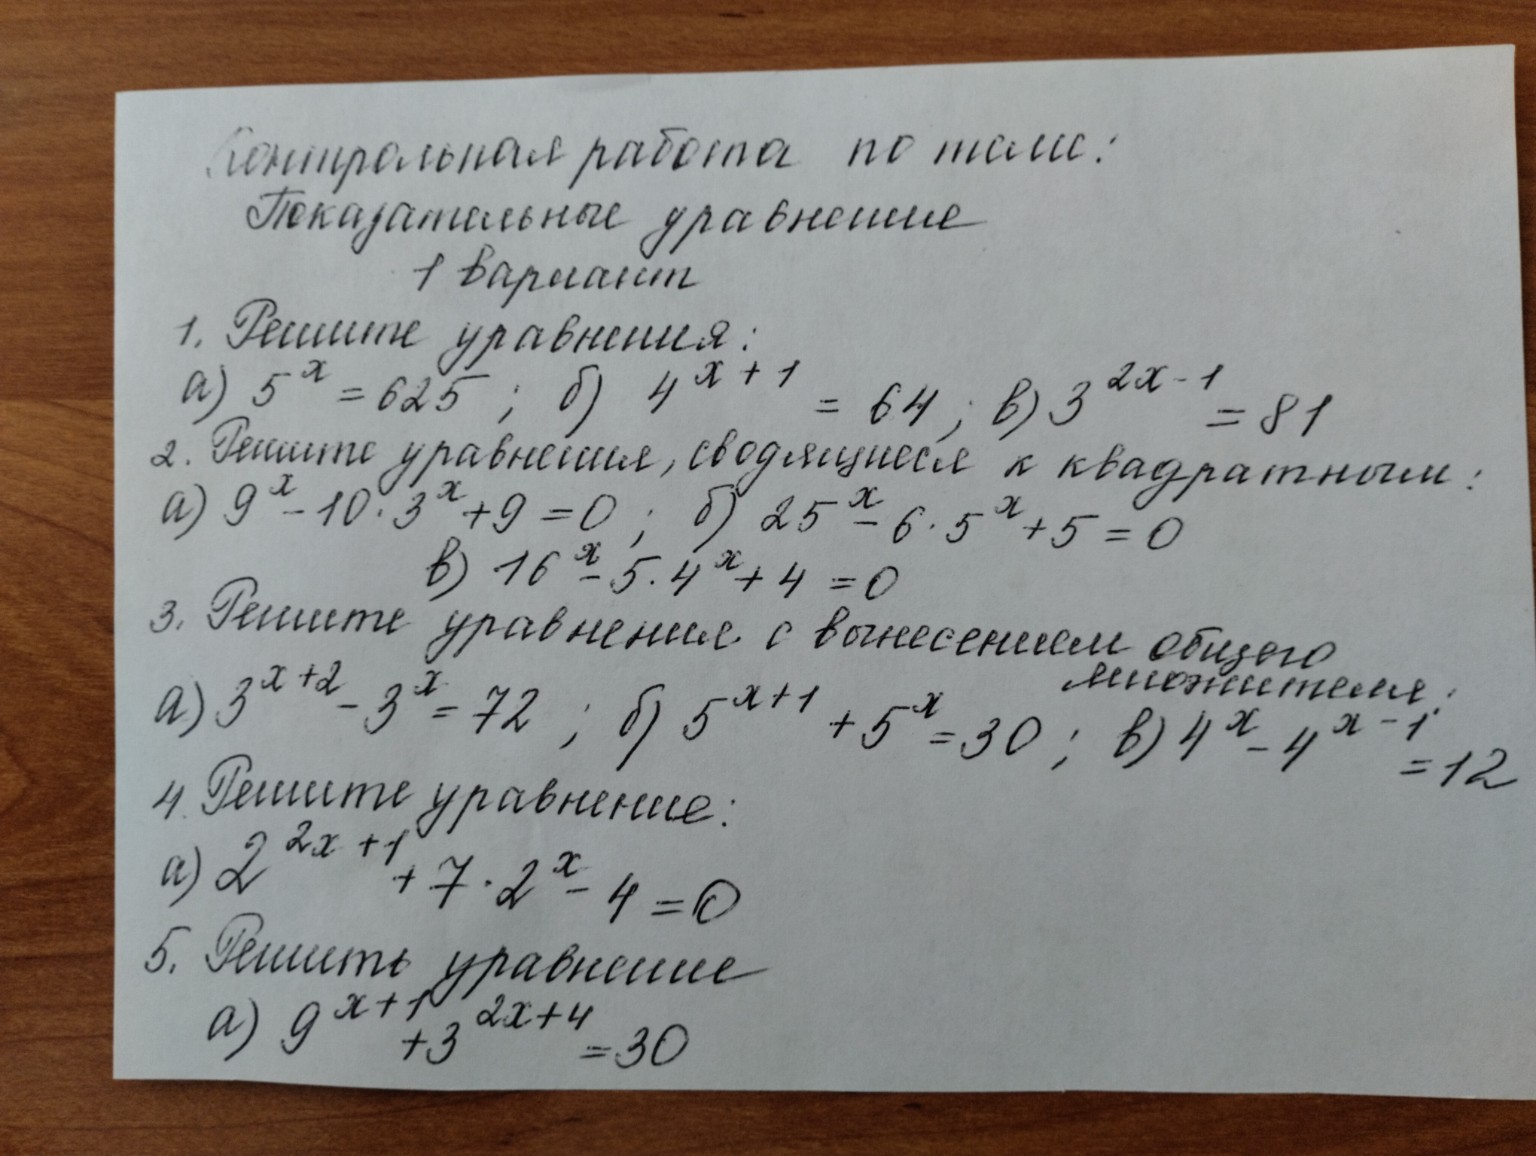 Контрольная работа по теме:
Показательные уравнение
1 вариант
1. Решите уравнения:
а) 5^x = 625 ; б) 4^{x+1} = 64 ; в) 3^{2x-1} = 81
2. Решите уравнения, сводящиеся к квадратным:
а) 9^x - 10·3^x + 9 = 0 ; б) 25^x - 6·5^x + 5 = 0
в) 16^x - 5·4^x + 4 = 0
3. Решите уравнения с вынесением общего
множителя:
а) 3^{x+2} - 3^x = 72 ; б) 5^{x+1} + 5^x = 30 ; в) 4^x - 4^{x-1} = 12
4. Решите уравнение:
а) 2^{2x+1} + 7·2^x - 4 = 0
5. Решить уравнение
а) 9^{x+1} + 3^{2x+4} = 30